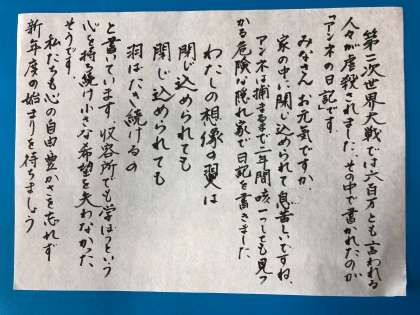 第二次世界大戦では六百万とも言われる
人々が虐殺されました。その中で書かれたのが
「アンネの日記」です。
みなさん お元気ですか。
家の中に閉じ込められて息苦しいですね。
アンネは捕まるまで二年間咳一つしても見つ
かる危険な隠れ家で日記を書きました。
わたしの想像の翼は
閉じ込められても
閉じ込められても
羽ばたき続けるの
と書いています。収容所でも学ぼうという
心を持ち続け小さな希望を失わなかった
そうです。
私たちも心の自由豊かさを忘れず
新年度の始まりを待ちましょう